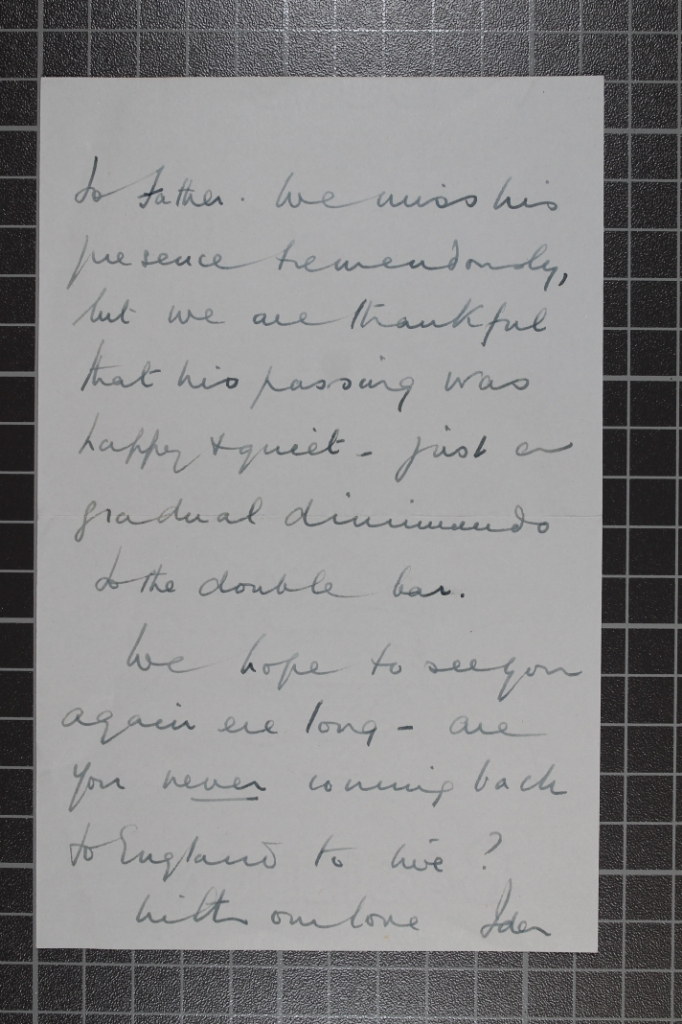 to Father. We miss his
presence tremendously,
but we are thankful
that his passing was
happy & quiet - just a
gradual diminuendo
to the double bar.
We hope to see you
again ere long - are
you never coming back
to England to live?
With our love Ida